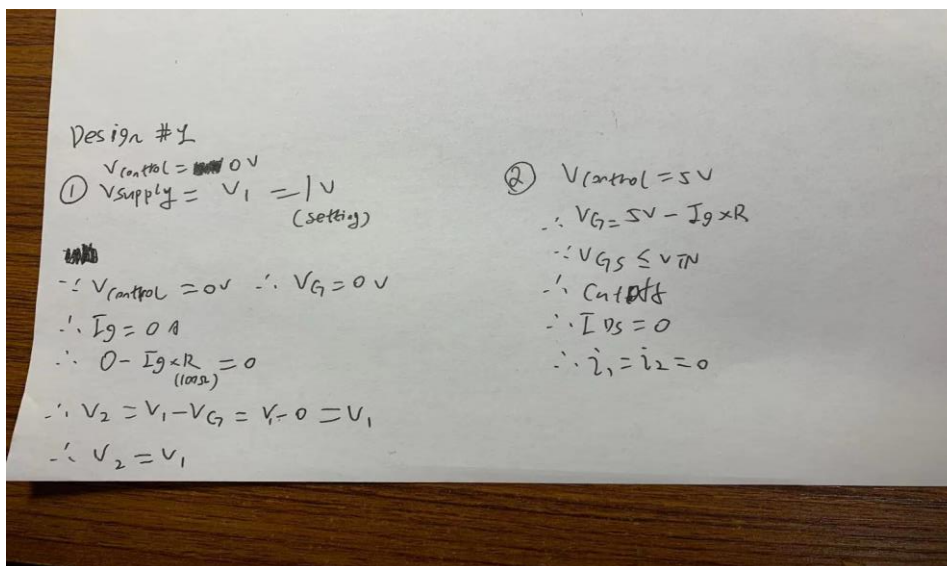 Design #1
Vcontrol = 0V
① Vsupply = V1 = 1V
(setting)
∵ Vcontrol = 0V ∴ VG = 0V
∴ Ig = 0A
∴ 0 - Ig×R = 0
(100Ω)
∴ V2 = V1 - VG = V1 - 0 = V1
∴ V2 = V1
② Vcontrol = 5V
∴ VG = 5V - Ig×R
∵ VGS ≤ VTN
∴ Cutoff
∴ IDS = 0
∴ i1 = i2 = 0